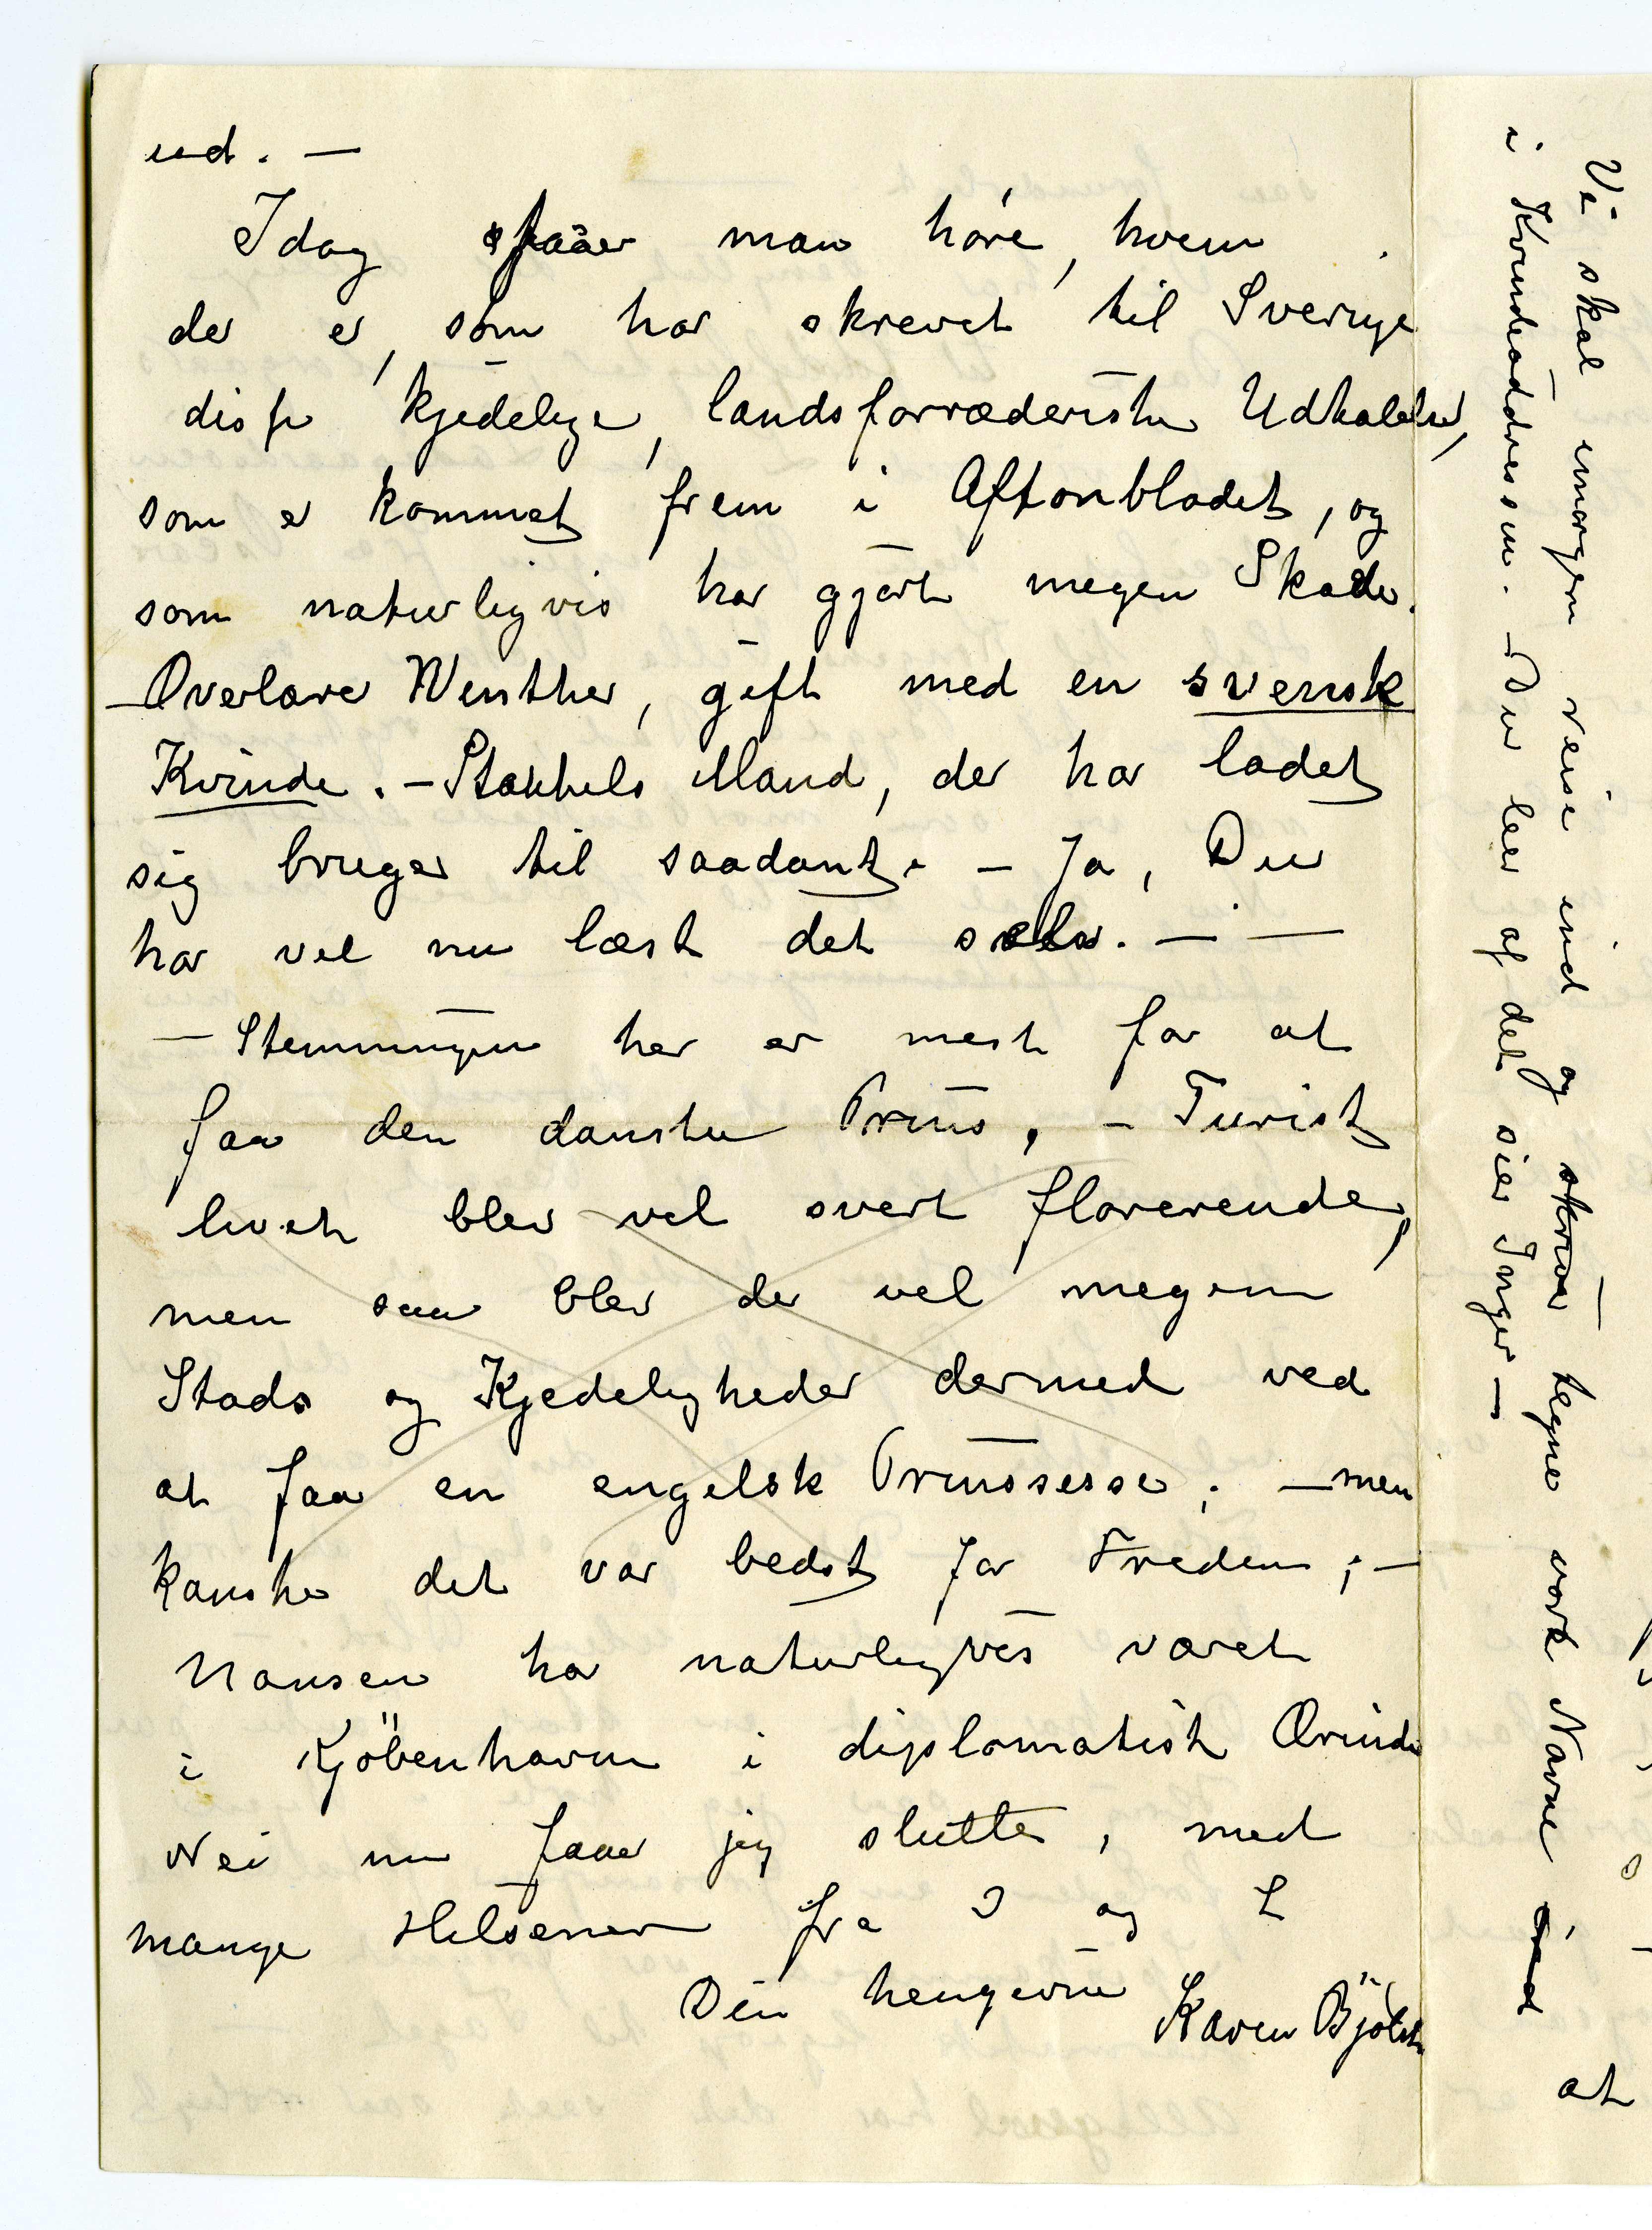 ud. —
Idag faaer man höre, hvem
der er, som har skrevet til Sverige
disse kjedelige, landsforræderiske Udtalelser,
som er kommet frem i Aftonbladet, og
som naturligvis har gjort megen Skade.
— Overlærer Winther, gift med en svensk
Kvinde. — Stakkels Mand, der har ladet
sig bruger til saadant. — Ja, Du
har vel nu læst det selv. — —
— Stemningen her er mest for at
faa den danske Prins, — Turist
livet blev vel svert florerende,
men saa blev der vel megen
Stads og Kjedeligheder dermed ved
at faa en engelsk Prinsesse; — men
kanske det var bedst for Freden; —
Nansen har naturligvis været
i Kjöbenhavn i diplomatisk Ærinde
Nei nu faaer jeg slutte, med
mange Hilsener fra I og L
Din hengivne Karen Bjölst
Vi skal imorgen reise ind og skrive tegne vort Navne ind
i Kvindeaddressen. — Du leer af det sier Inger —
at